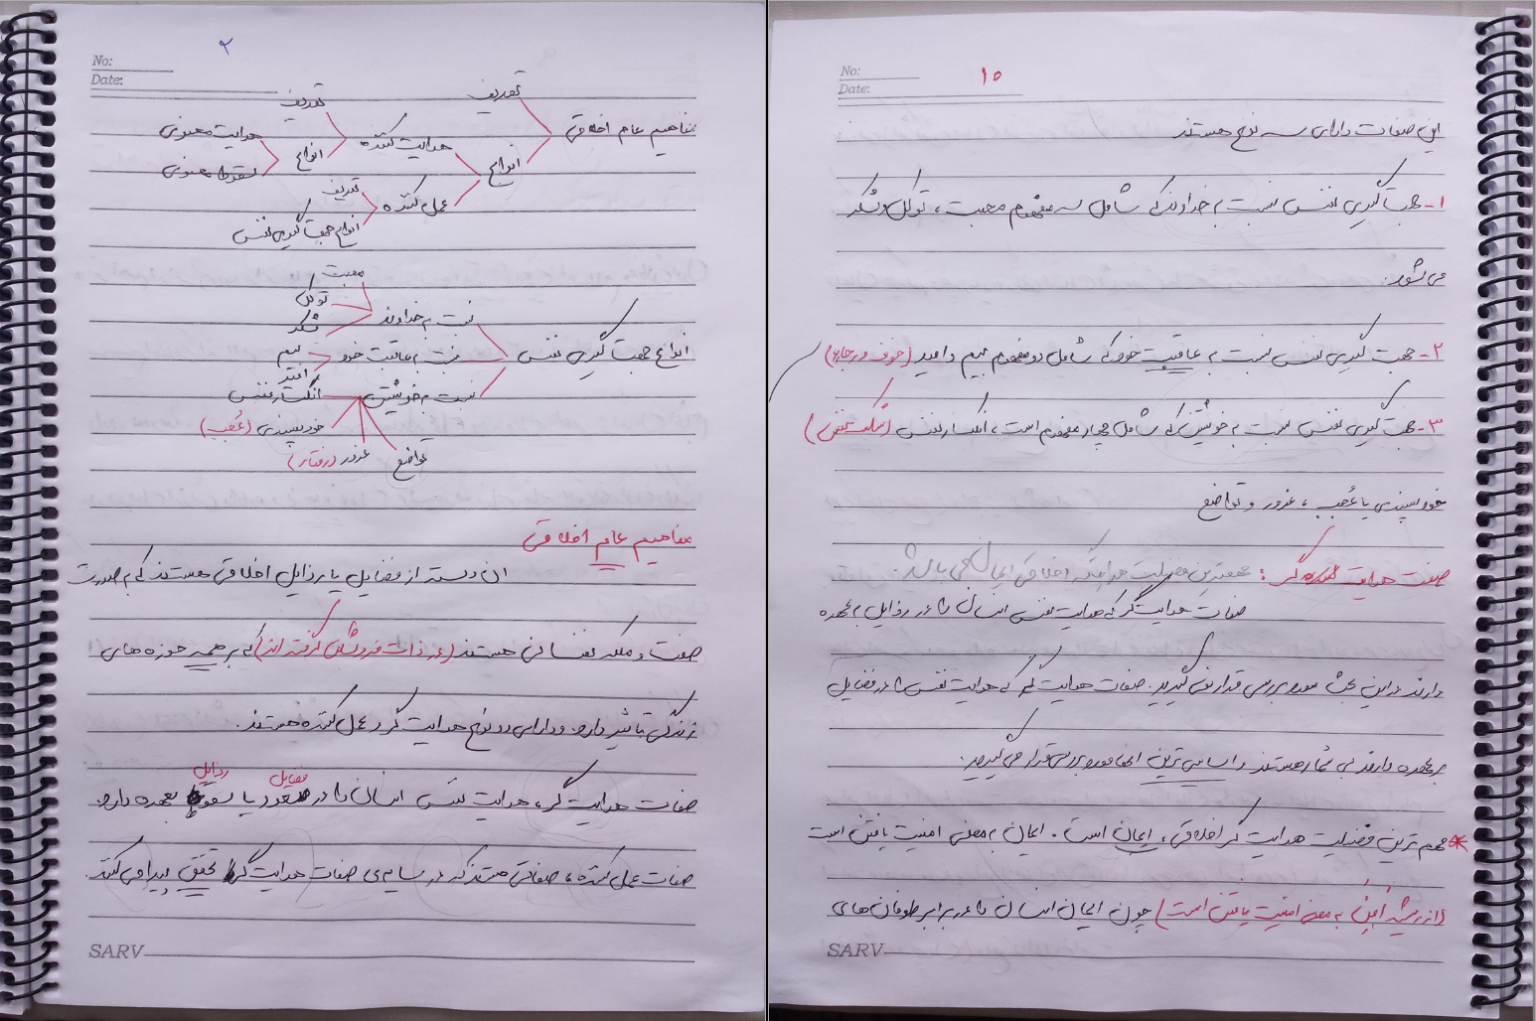 ۲
No:
Date:
مفاهیم عام اخلاقی
تعریف
انواع
هدایت کننده
تعریف
انواع
هدایت معنوی
سقوط معنوی
عمل کننده
تعریف
انواع جهت گیری نفس
انواع جهت گیری نفس
نسبت به خداوند
محبت
توکل
شکر
نسبت به عاقبت خود
بیم
امید
نسبت به خویشتن
انکسار نفس
خودپسندی (عُجب)
غرور (رفتار)
تواضع
مفاهیم عام اخلاقی
آن دسته از فضایل یا رذایل اخلاقی هستند که به صورت
صفت و ملکه نفسانی هستند (در ذات فرد شکل گرفته اند) که بر همه حوزه های
زندگی تاثیر دارد و دارای دو نوع هدایت گر و عمل کننده هستند.
فضایل رذایل
صفات هدایت گر، هدایت نفس انسان را در صعود یا سقوط بعهده دارد
صفات عمل کننده، صفاتی هستند که در سایه ی صفات هدایت گر تحقق پیدا می کنند.
SARV
۱۵
No:
Date:
این صفات دارای سه نوع هستند
۱- جهت گیری نفس نسبت به خداوند که شامل سه مفهوم محبت، توکل و شکر
می شود.
۲- جهت گیری نفس نسبت به عاقبت خود که شامل دو مفهوم بیم و امید (خوف و رجاء)
۳- جهت گیری نفس نسبت به خویشتن که شامل چهار مفهوم است، انکسار نفس (شکست نفس)
خودپسندی یا عُجب، غرور و تواضع
صفت هدایت گر: مهمترین فضیلت هدایتگر اخلاقی ایمان می باشد.
صفات هدایت گر که هدایت نفس انسان را در رذایل به عهده
دارند در این بحث مورد بررسی قرار نمی گیرید. صفات هدایت گر که هدایت نفس را در فضایل
بر عهده دارند بی شمار هستند و اساسی ترین آنها مورد بررسی قرار می گیرید.
* مهم ترین فضیلت هدایت گر اخلاقی، ایمان است. ایمان به معنی امنیت یافتن است
(از ریشه اَمِنَ به معنی امنیت یافتن است) چون ایمان انسان را در برابر طوفان های
SARV